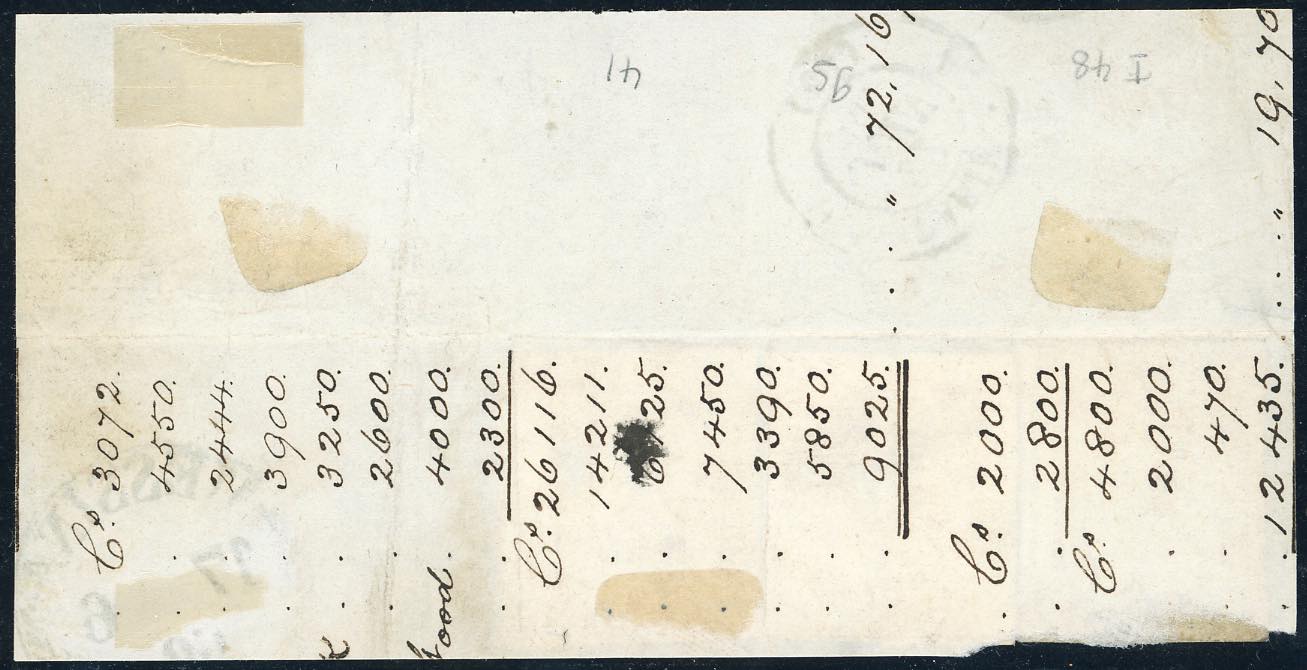 Cs. 3072.
4550.
2444.
3900.
3250.
2600.
ood. 4000.
2300.
Cs. 26116.
14211.
7450.
3390.
5850.
9025. . . . " 72, 16
Cs. 2000.
2800.
Cs. 4800.
2000.
470.
12435. . . . " 19, 70
41
95
I 48